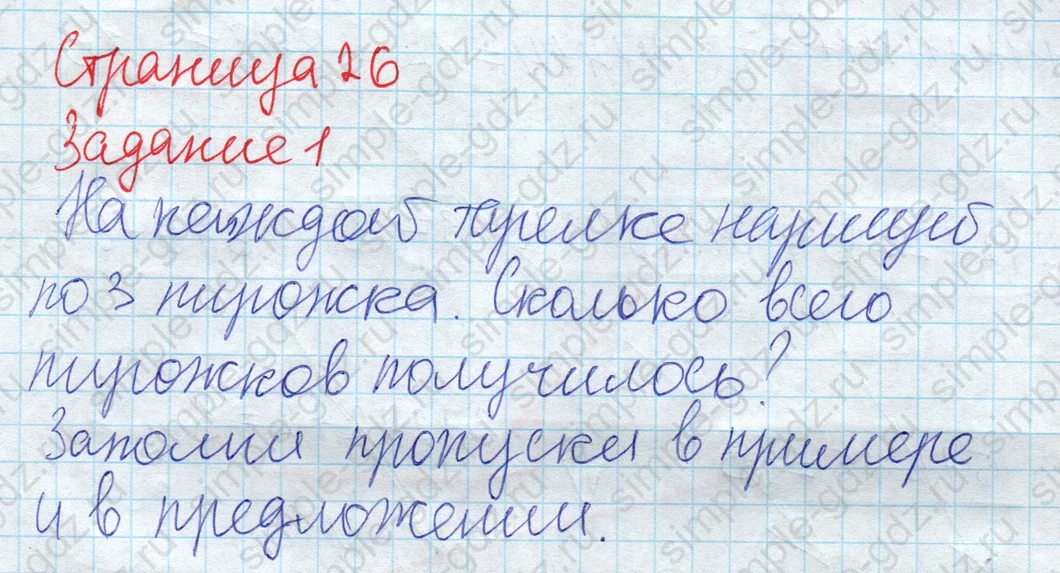 Страница 26
Задание 1
На каждой тарелке нарисуй
по 3 пирожка. Сколько всего
пирожков получилось?
Заполни пропуски в примере
и в предложении.
simple-gdz.ru